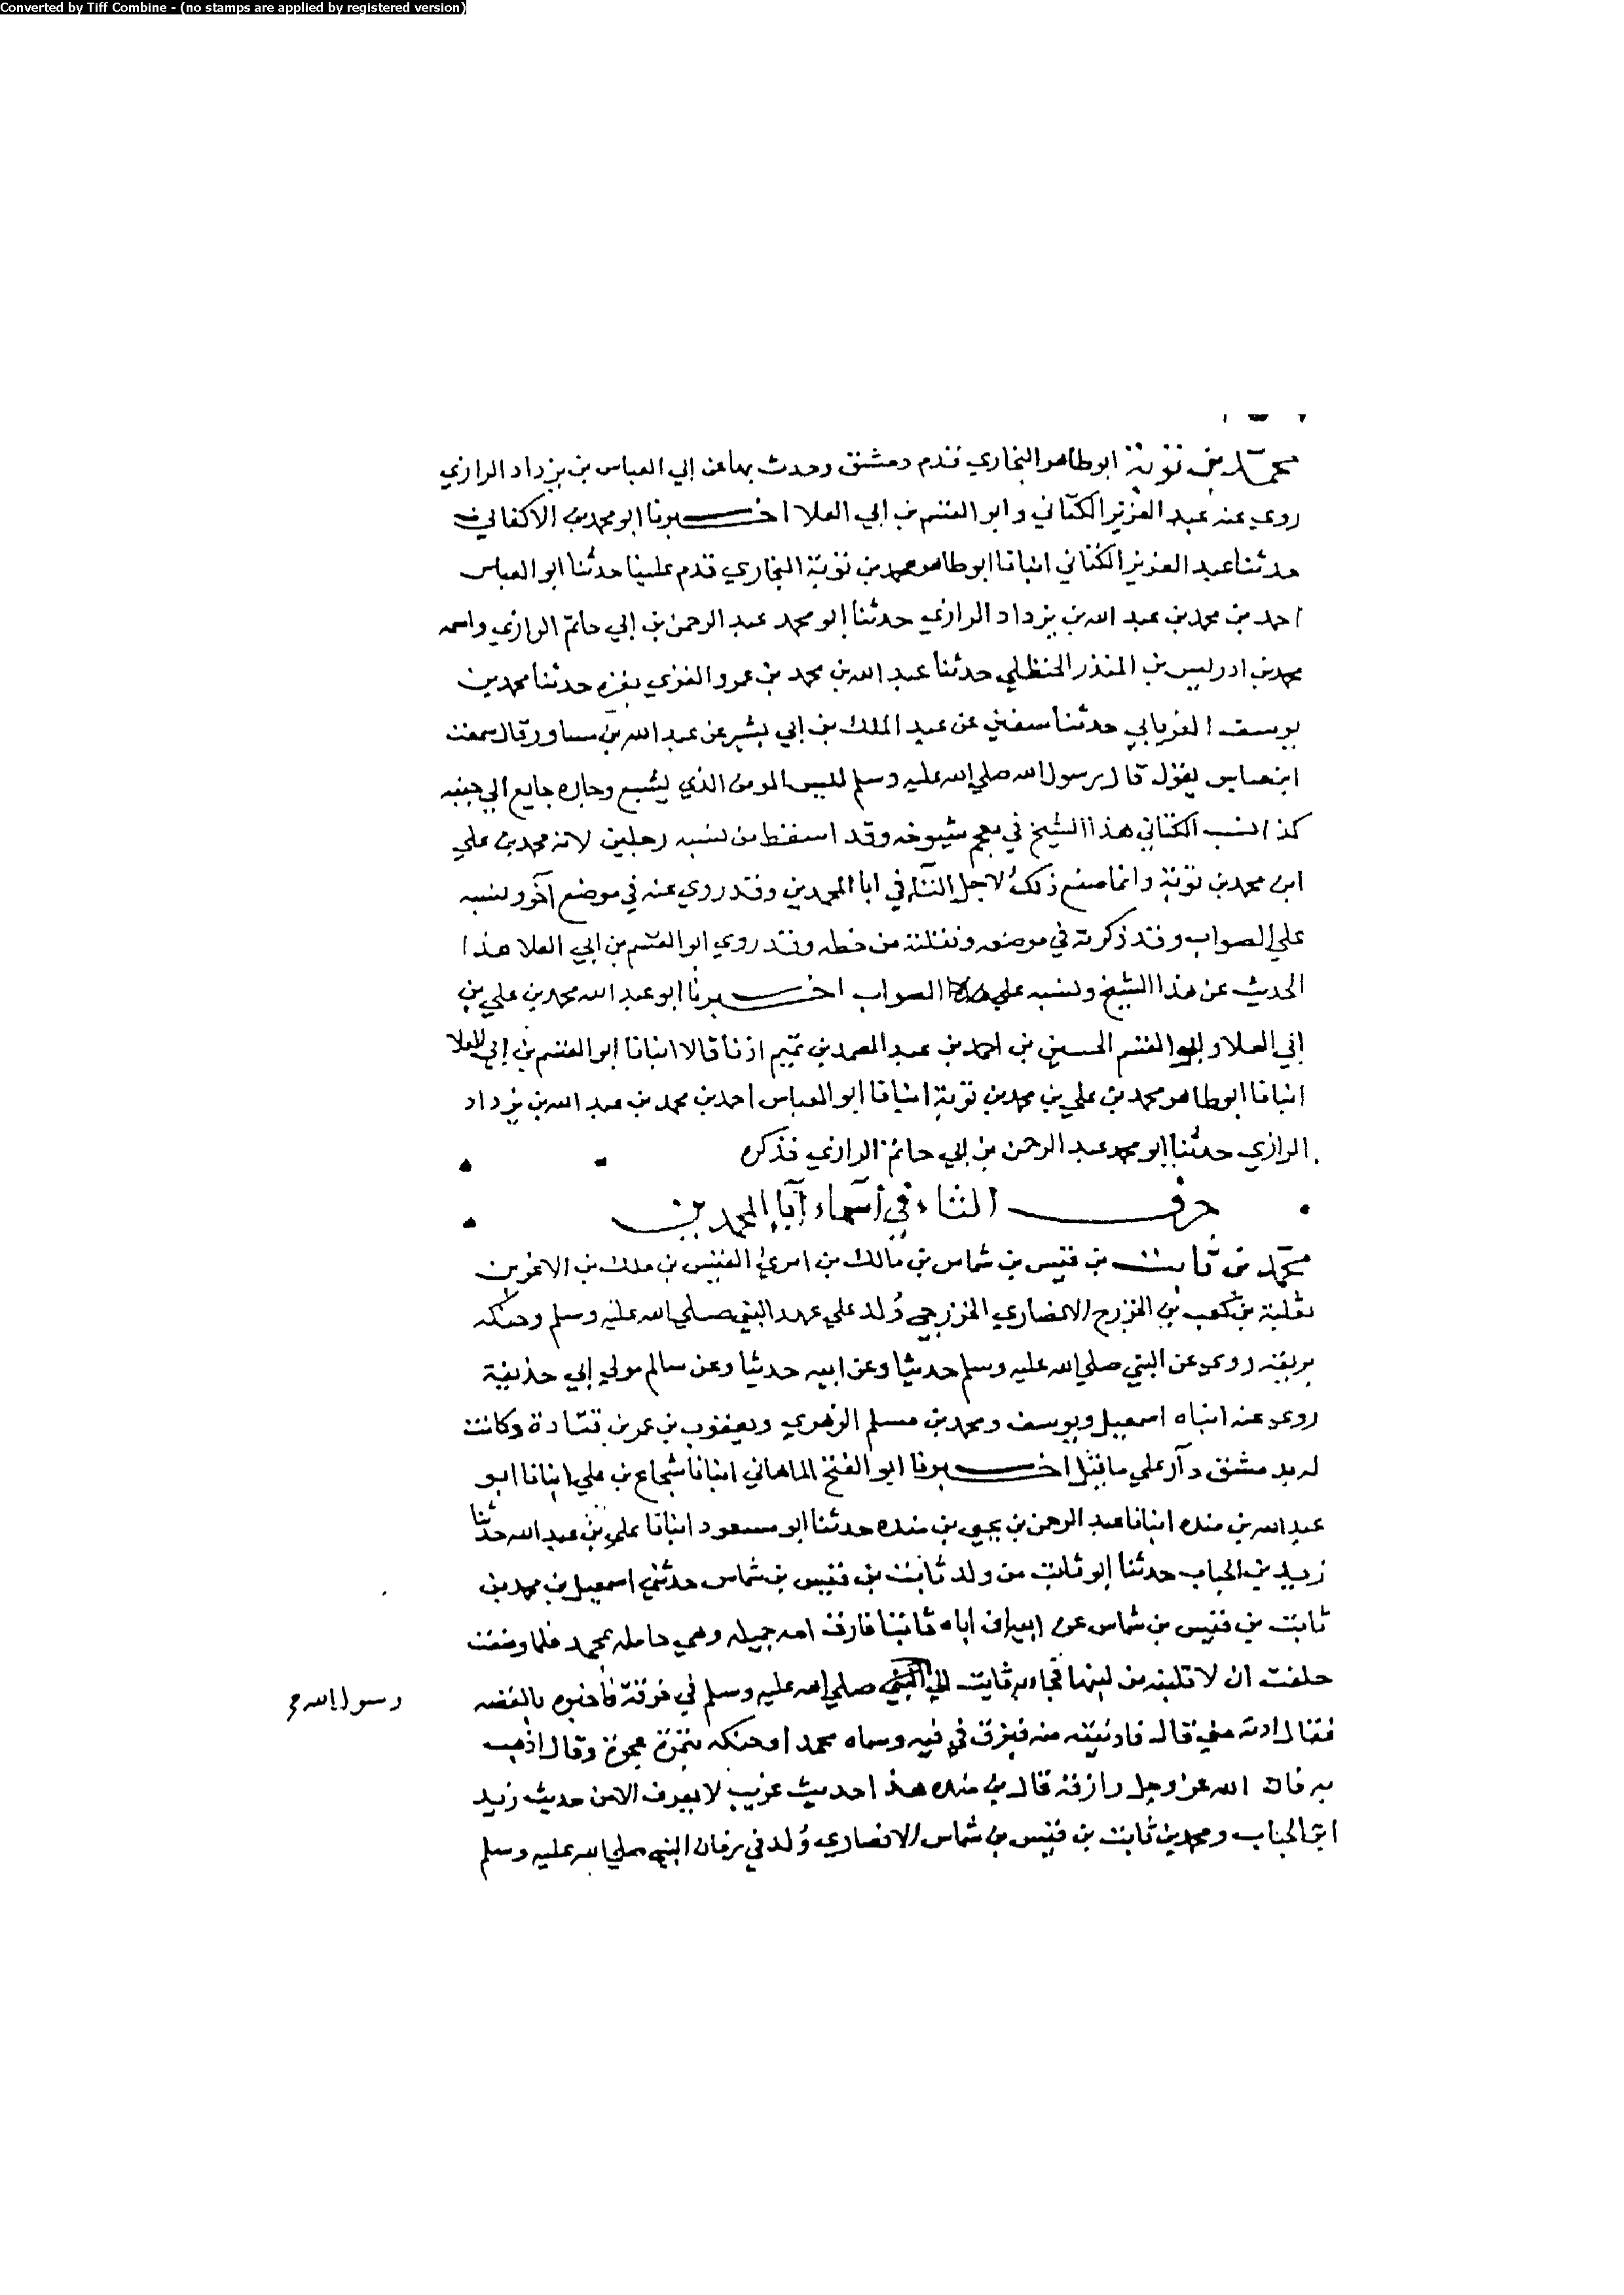 Converted by Tiff Combine - (no stamps are applied by registered version)
محمد بن توبة ابو طاهر البخاري قدم دمشق وحدث بها عن ابي العباس بن يزداد الرازي
روي عنه عبد العزيز الكتاني وابو القسم بن ابي العلا اخبرنا ابو محمد بن الاكفاني
حدثنا عبد العزيز الكتاني انبانا ابو طاهر محمد بن توبة البخاري قدم علينا حدثنا ابو العباس
احمد بن محمد بن عبد الله بن يزداد الرازي حدثنا ابو محمد عبد الرحمن بن ابي حاتم الرازي واسمه
محمد بن ادريس بن المنذر الحنظلي حدثنا عبد الله بن محمد بن عمرو الغزي بغزه حدثنا محمد بن
يوسف الفريابي حدثنا سفين عن عبد الملك بن ابي بشير عن عبد الله بن مساور قال سمعت
ابن عباس يقول قال رسول الله صلي الله عليه وسلم ليس المومن الذي يشبع وجاره جايع الي جنبه
كذا نسب الكتاني هذا الشيخ في معجم شيوخه وقد اسقط من نسبه رجلين لانه محمد بن علي
ابن محمد بن توبة وانما صنع ذلك لاجل التاء في ابا المحمدين وقد روي عنه في موضع آخر ونسبه
علي الصواب وقد ذكرته في موضعه ونقلته من خطه وقد روي ابو القسم بن ابي العلا هذا
الحديث عن هذا الشيخ ونسبه علي الصواب اخبرنا ابو عبد الله محمد بن علي بن
ابي العلا وابو القسم الحسين بن احمد بن عبد الصمد بن تميم اذنا قالا انبانا ابو القسم بن ابي العلا
انبانا ابو طاهر محمد بن علي بن محمد بن توبة انبانا ابو العباس احمد بن محمد بن عبد الله بن يزداد
الرازي حدثنا ابو محمد عبد الرحمن بن ابي حاتم الرازي فذكره
حرف الثاء في أسماء آباء المحمدين
محمد بن ثابت بن قيس بن شماس بن مالك بن امرئ القيس بن ملك بن الاغر بن
ثعلبة بن كعب بن الخزرج الانصاري الخزرجي وُلد علي عهد النبي صلي الله عليه وسلم وحنكه
بريقه روي عن النبي صلي الله عليه وسلم حديثا وعن ابيه حديثا وعن سالم مولي ابي حذيفة
روي عنه ابناه اسمعيل ويوسف ومحمد بن مسلم الزهري ويعقوب بن عمر بن قتادة وكانت
له بدمشق دار علي ما قيل اخبرنا ابو الفتح الماهاني انبانا شجاع بن علي انبانا ابو
عبد الله بن منده انبانا عبد الرحمن بن يحيي بن منده حدثنا ابو مسعود انبانا علي بن عبد الله حدثنا
زيد بن الحباب حدثنا ابو ثابت من ولد ثابت بن قيس بن شماس حدثني اسمعيل بن محمد بن
ثابت بن قيس بن شماس عن ابيه ان اباه ثابتا فارق امه جميله وهي حامله بمحمد فلما وضعت
حلفت ان لا تلبنه من لبنها فجاء به ثابت الي النبي صلي الله عليه وسلم في خرقة فأخبره بالقصه
رسول الله
فقال ادنه مني قال فادنيته منه فبزق في فيه وسماه محمدا وحنكه بتمرة عجوة وقال اذهب
به فان الله عز وجل رازقه قال بن منده هذا حديث غريب لا يعرف الا من حديث زيد
ابن الحباب ومحمد بن ثابت بن قيس بن شماس الانصاري وُلد في زمان النبي صلي الله عليه وسلم